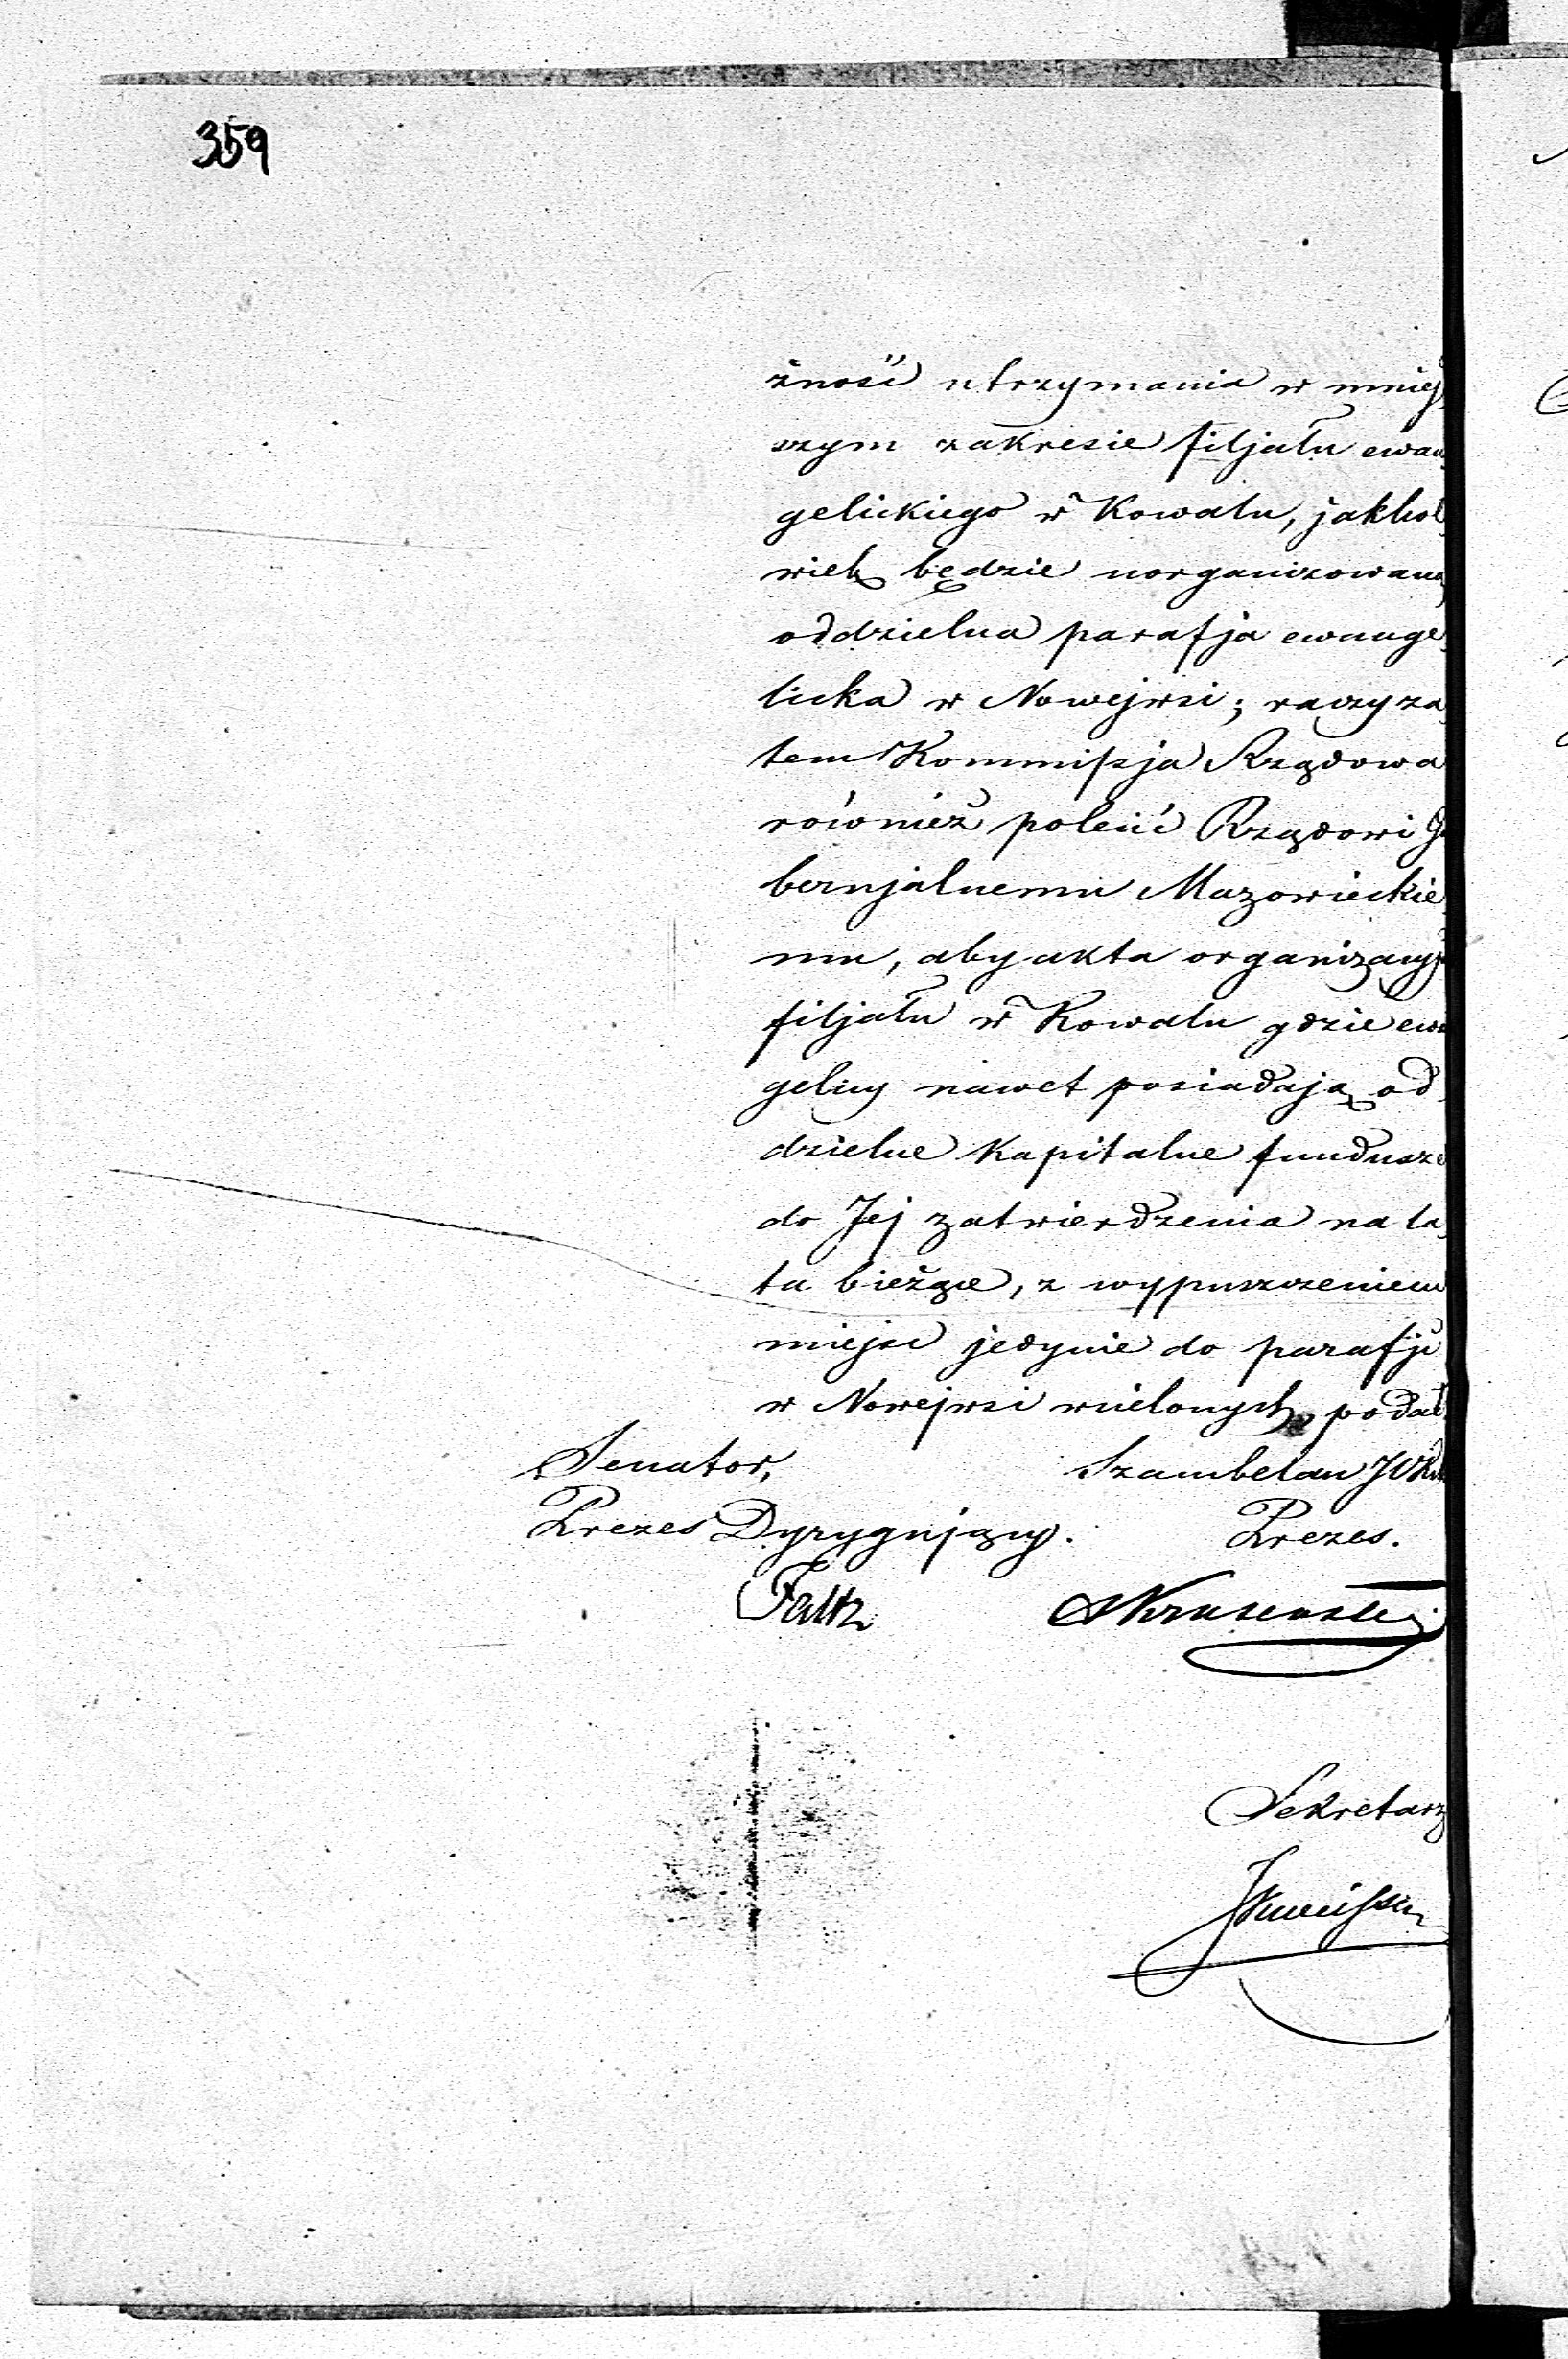 359
żność utrzymania w mniej
szym zakresie filjału ewan
gelickiego w Kowalu, jakkol
wiek będzie uorganizowana
oddzielna parafja ewange
licka w Nowejwsi; raczy za
tem Kommissja Rządowa
również polecić Rządowi Gu
bernjalnemu Mazowieckie
mu, aby akta organizacyi
filjału w Kowalu gdzie ewa
gelicy nawet posiadają od
dzielne kapitalne fundusze
do Jej zatwierdzenia na la
ta bieżące, z wypuszczeniem
miejsc jedynie do parafji
w Nowejwsi wcielonych, podał.
Senator, Szambelan JCKM
Prezes Dyrygujący. Prezes.
Faltz Krusenstern
Sekretarz